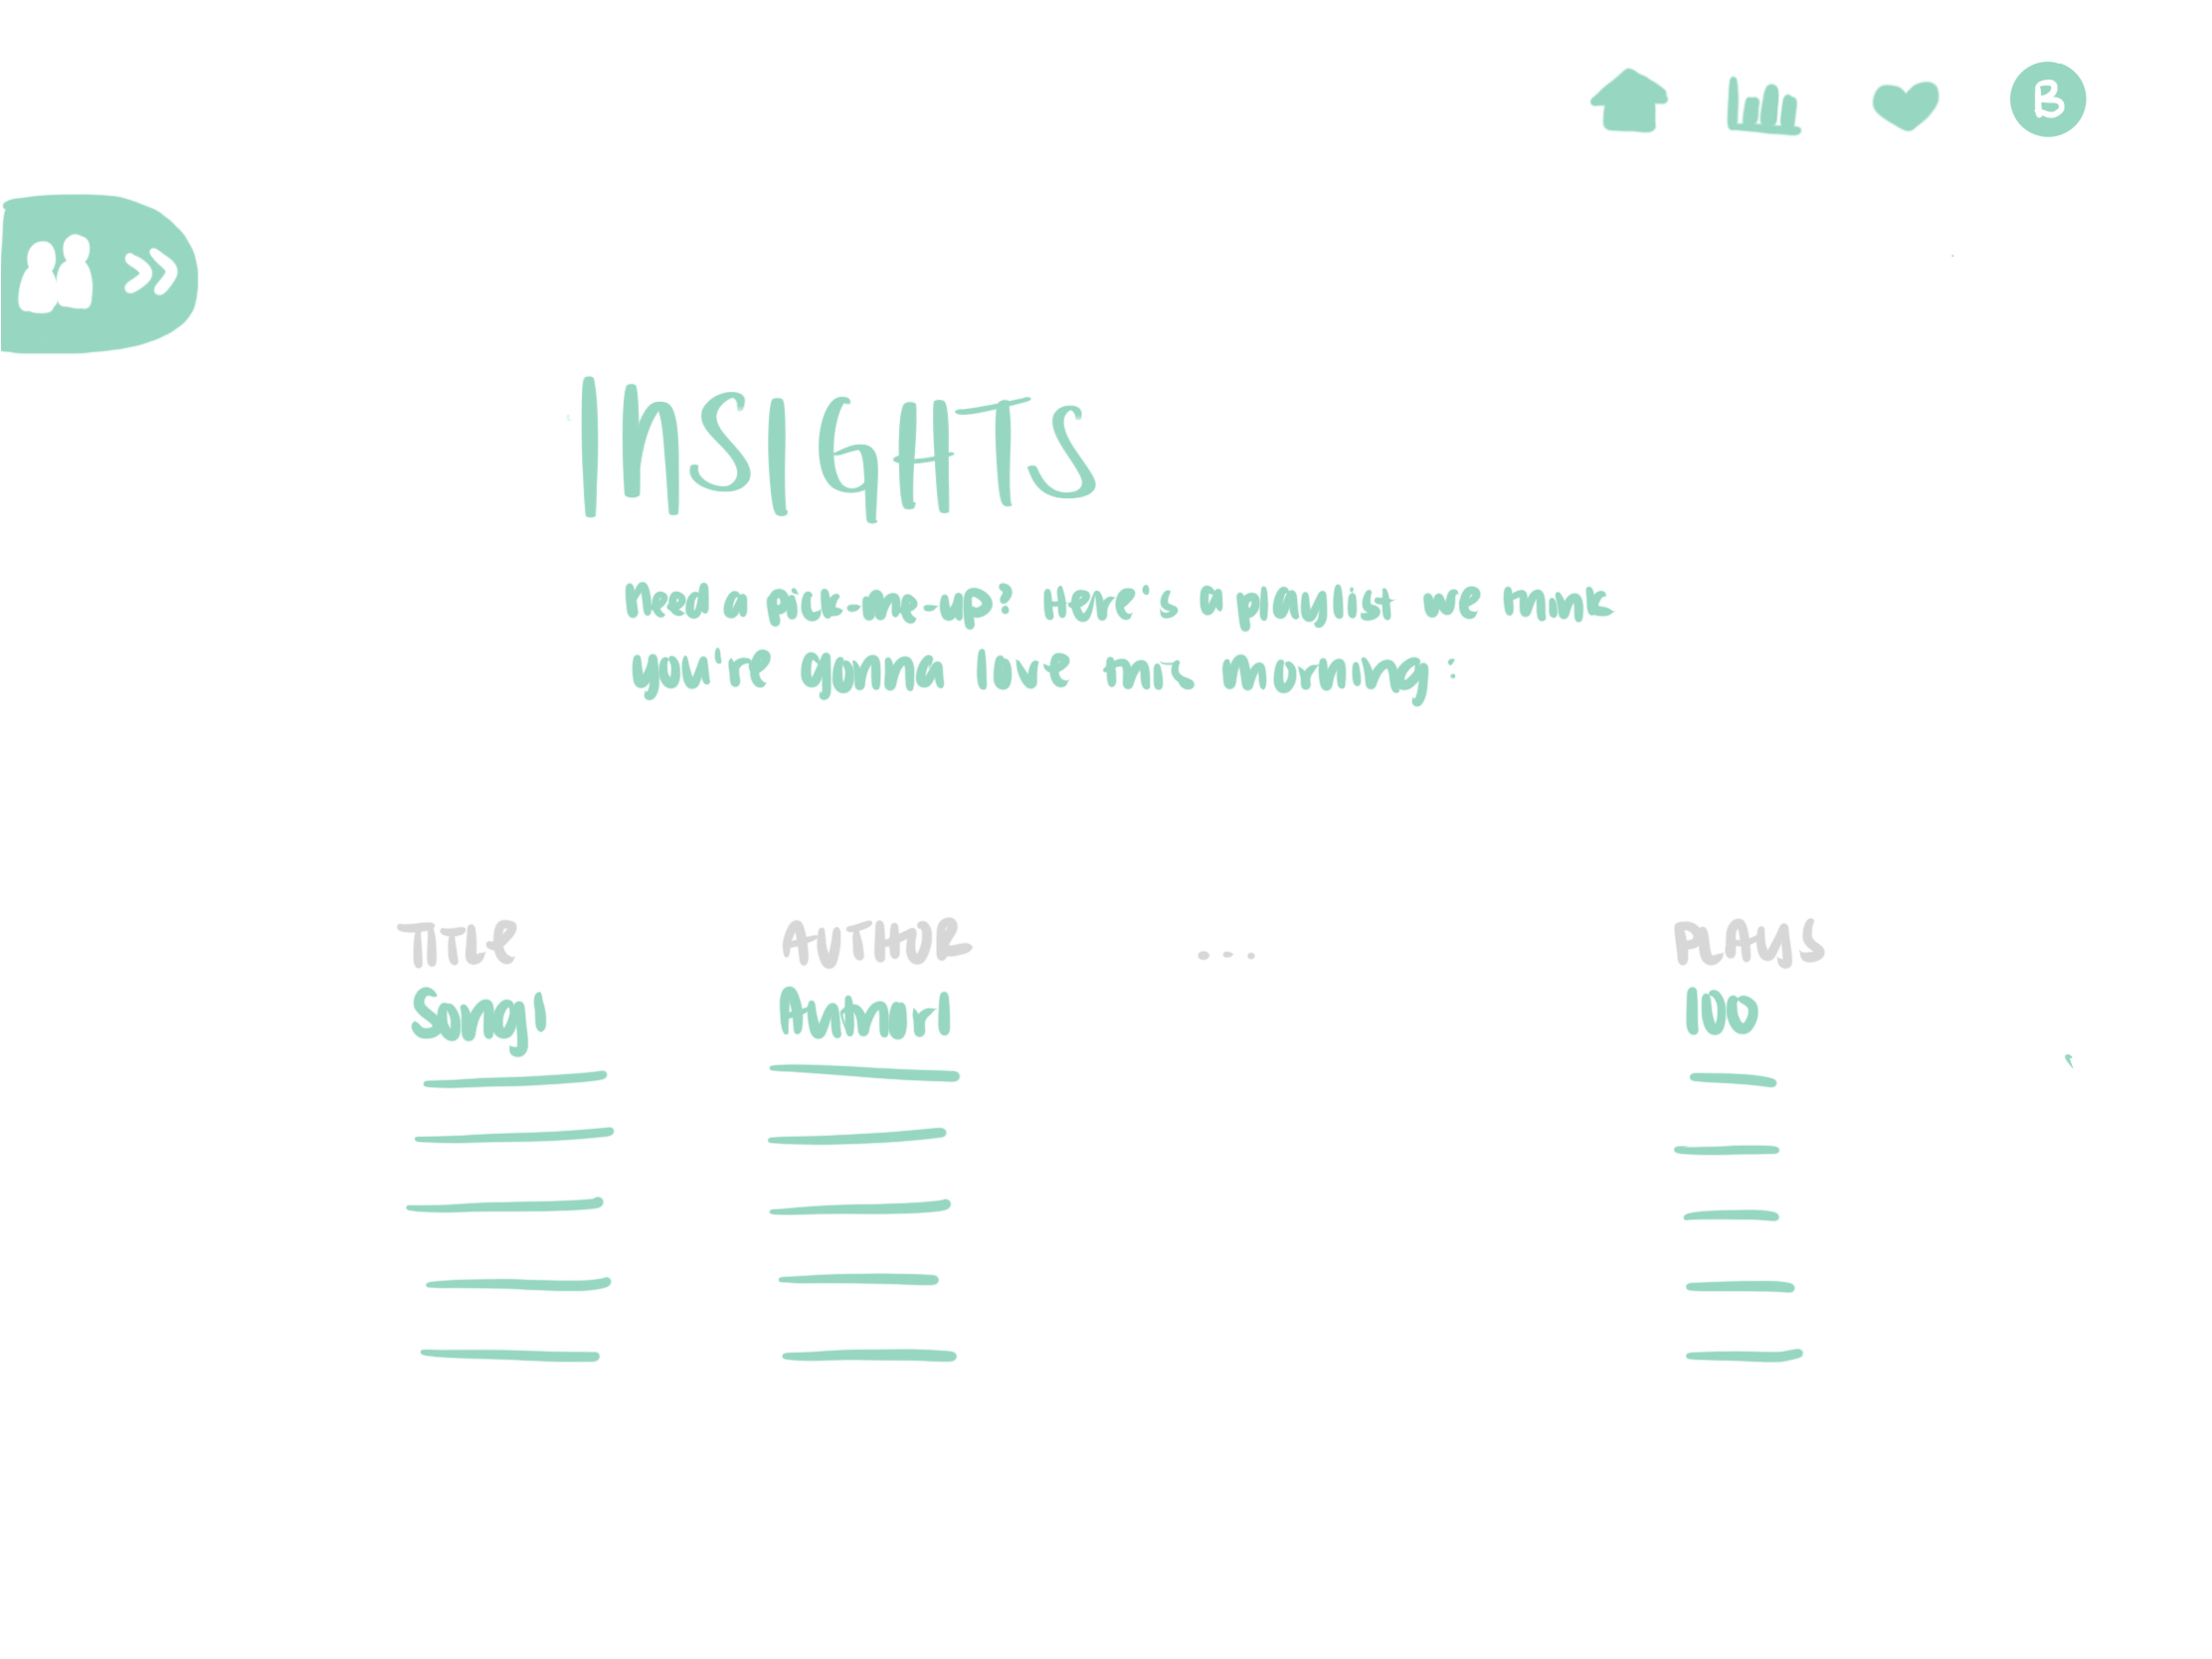 B
INSIGHTS
Need a pick-me-up? Here's a playlist we think
you're gonna love this morning:
TITLE AUTHOR ... PLAYS
Song1 Author1 100